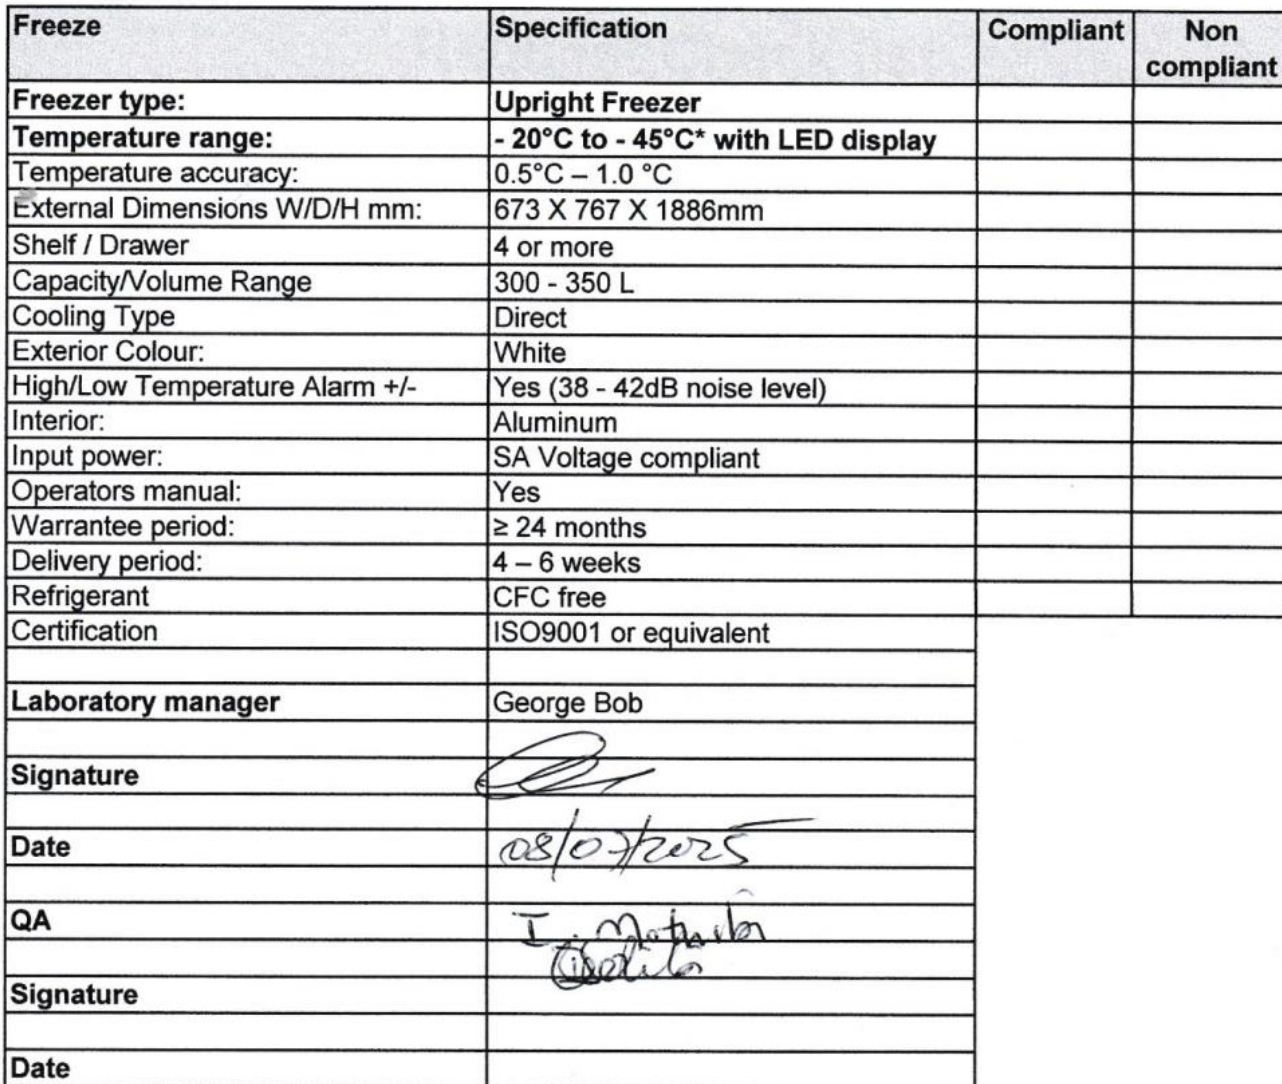 Freeze Specification Compliant Non compliant
Freezer type: Upright Freezer
Temperature range: - 20°C to - 45°C* with LED display
Temperature accuracy: 0.5°C – 1.0 °C
External Dimensions W/D/H mm: 673 X 767 X 1886mm
Shelf / Drawer 4 or more
Capacity/Volume Range 300 - 350 L
Cooling Type Direct
Exterior Colour: White
High/Low Temperature Alarm +/- Yes (38 - 42dB noise level)
Interior: Aluminum
Input power: SA Voltage compliant
Operators manual: Yes
Warrantee period: ≥ 24 months
Delivery period: 4 – 6 weeks
Refrigerant CFC free
Certification ISO9001 or equivalent
Laboratory manager George Bob
Signature
Date 08/07/2025
QA I.
Signature
Date